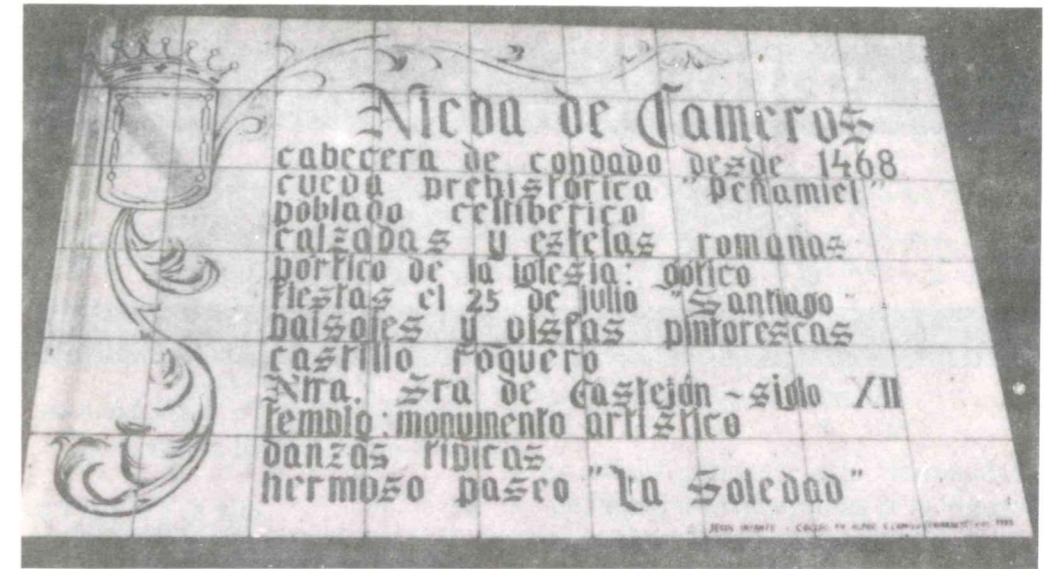 Nieva de Cameros
cabecera de condado desde 1468
cueva prehistórica "Peñamiel"
poblado celtiberico
calzadas y estelas romanas
pórtico de la iglesia: gótico
fiestas el 25 de julio "Santiago"
paisajes y vistas pintorescas
castillo roquero
Ntra. Sra de Castejón ~ siglo XII
templo: monumento artístico
danzas típicas
hermoso paseo "La Soledad"
JESUS INFANTE